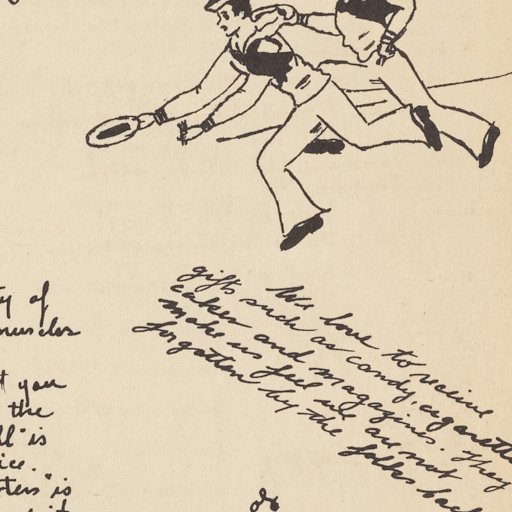 ty of
muscles
t you
the
ll" is
ice.
ters" is
We love to receive
gifts such as candy, cigarette
cakes and magazines. They
make us feel we are not
forgotten by the folks back